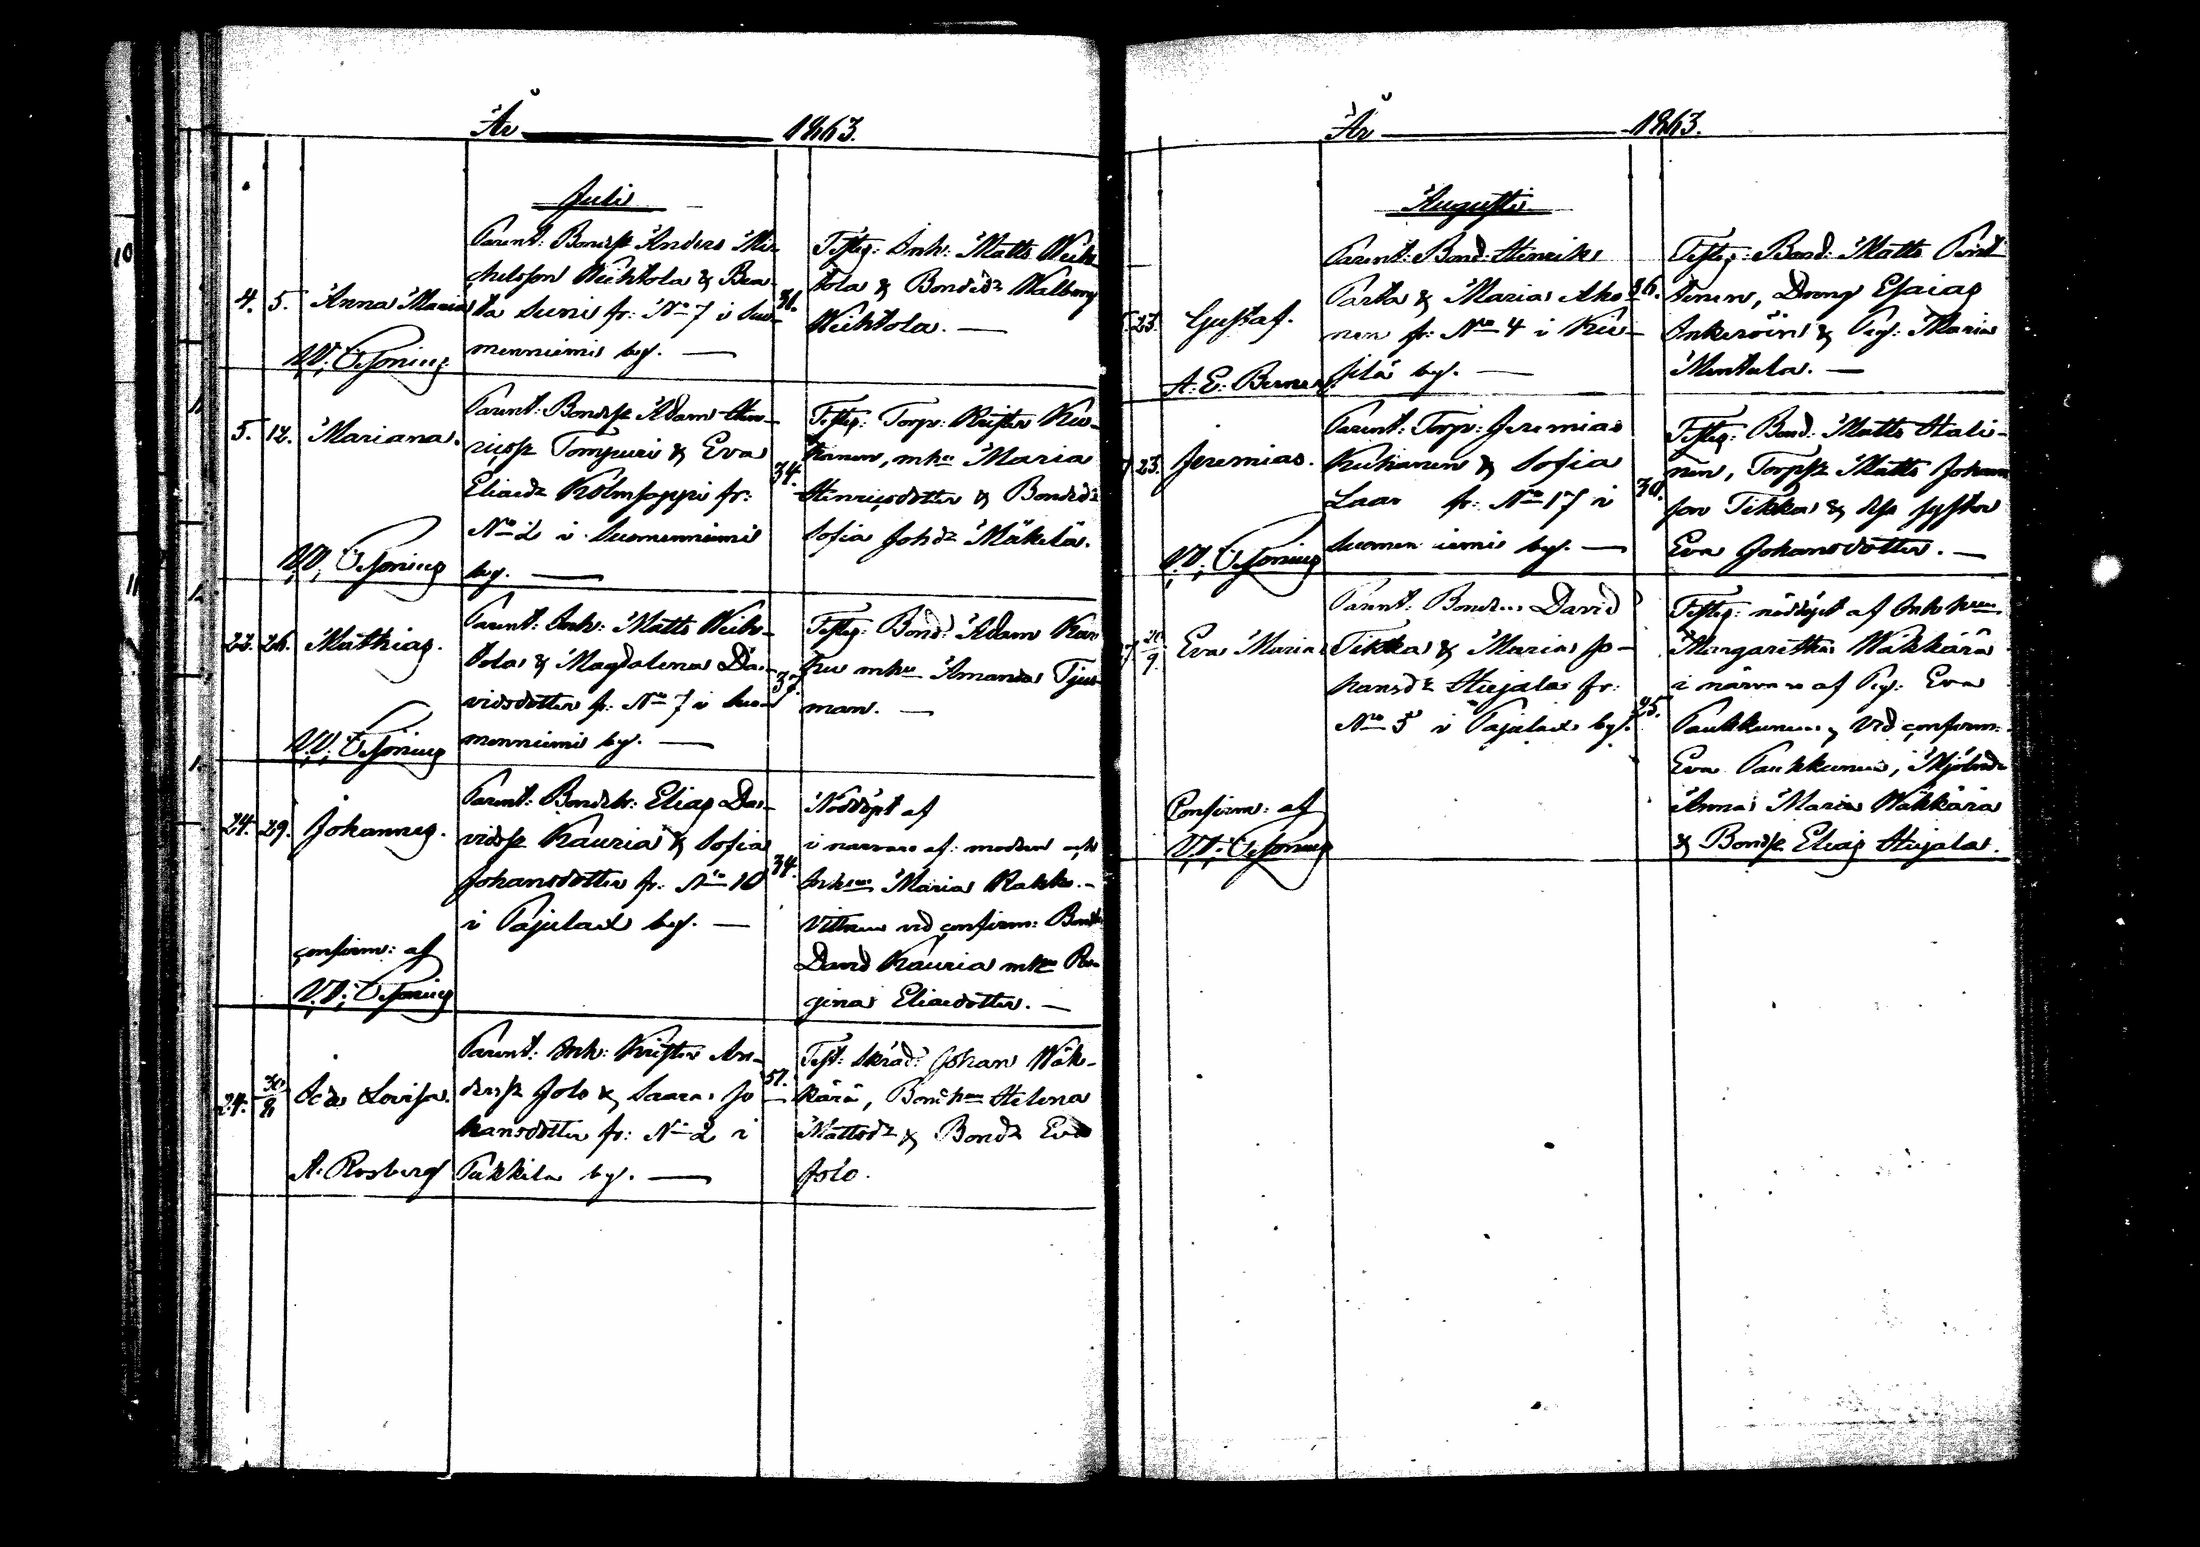 År 1863.
Juli
4. 5. Anna Maria
V.V.
Parent: Bondss Anders Mi-
chelsson Weihtola & Bea-
ta Suni fr: No 7 i Suo-
menniemi by. —
31.
Testes: Inh: Matts Weih-
tola & Bondsdr Walborg
Weihtola. —
5. 12. Mariana.
V.V.
Parent: Bondss Adam Hen-
ricss Tompuri & Eva
Eliaedr Kolmsoppi fr:
No 2 i Suomenniemi
by. —
34.
Testes: Torp: Krister Kiu-
, mhu Maria
Henricsdotter & Bondsdr
Sofia Johdr Mäkelä.
23. 26. Mathias.
V.V.
Parent: Inh: Matts Weih-
tola & Magdalena Da-
vidsdotter fr. No 7 i Suo-
menniemi by. —
37.
Testes: Bond: Adam Kau-
mhu Amanda Tjus-
man. —
24. 29. Johannes.
confirm: af
V.V.
Parent: Bondeh: Elias Da-
vidss Kauria & Sofia
Johansdotter fr. No 10
i Pajulax by. —
34.
Nöddöpt af
i närvaro af: modren och
Inhsu Maria Rakko. -
Vittnen vid confirm: Bond:
David Kauria mhu Re-
gina Eliaedotter. —
24. 30/8 Ida Lovisa.
A. Rosberg
Parent: Inh: Krister An-
derss Jolo & Saara Jo-
hansdotter fr: No 2 i
Pukkila by. —
37.
Test: Skräd: Johan Wäk-
kärä, Bondhu Helena
Mattsdr & Bonddr Eva
Jolo.
År 1863.
Augusti.
23. Gustaf.
A. E. Berner
Parent: Bond: Henrik
Parta & Maria Aho-
nen fr. No 4 i Kii-
silä by. —
36.
Testes: Bond: Matts Pent-
tinen, Dreng Esaias
Inkeröin & Pig: Maria
Mentula. —
23. Jeremias.
V.V.
Parent: Torp: Jeremias
Kiukanen & Sofia
Laar fr: No 17 i
Suomen iemi by. —
30.
Testes: Bond: Matts Hali-
nen, Torpss Matts Johan
son Tikka & dess syster
Eva Johansdotter. —
9. Eva Maria
Confirm: af
V.V.
Parent: David
Tikka & Maria Jo-
hansdr Hujala fr:
No 5 i Pajulax by.
25.
Testes: nöddöpt af Inhhru
Margaretha Wäkkärä
i närvaro af Pig: Eva
Paukkunen, vid confirm:
Eva Paukkunen, Mjölndr
Anna Maria Wäkkärä
& Bondss Elias Hujala.